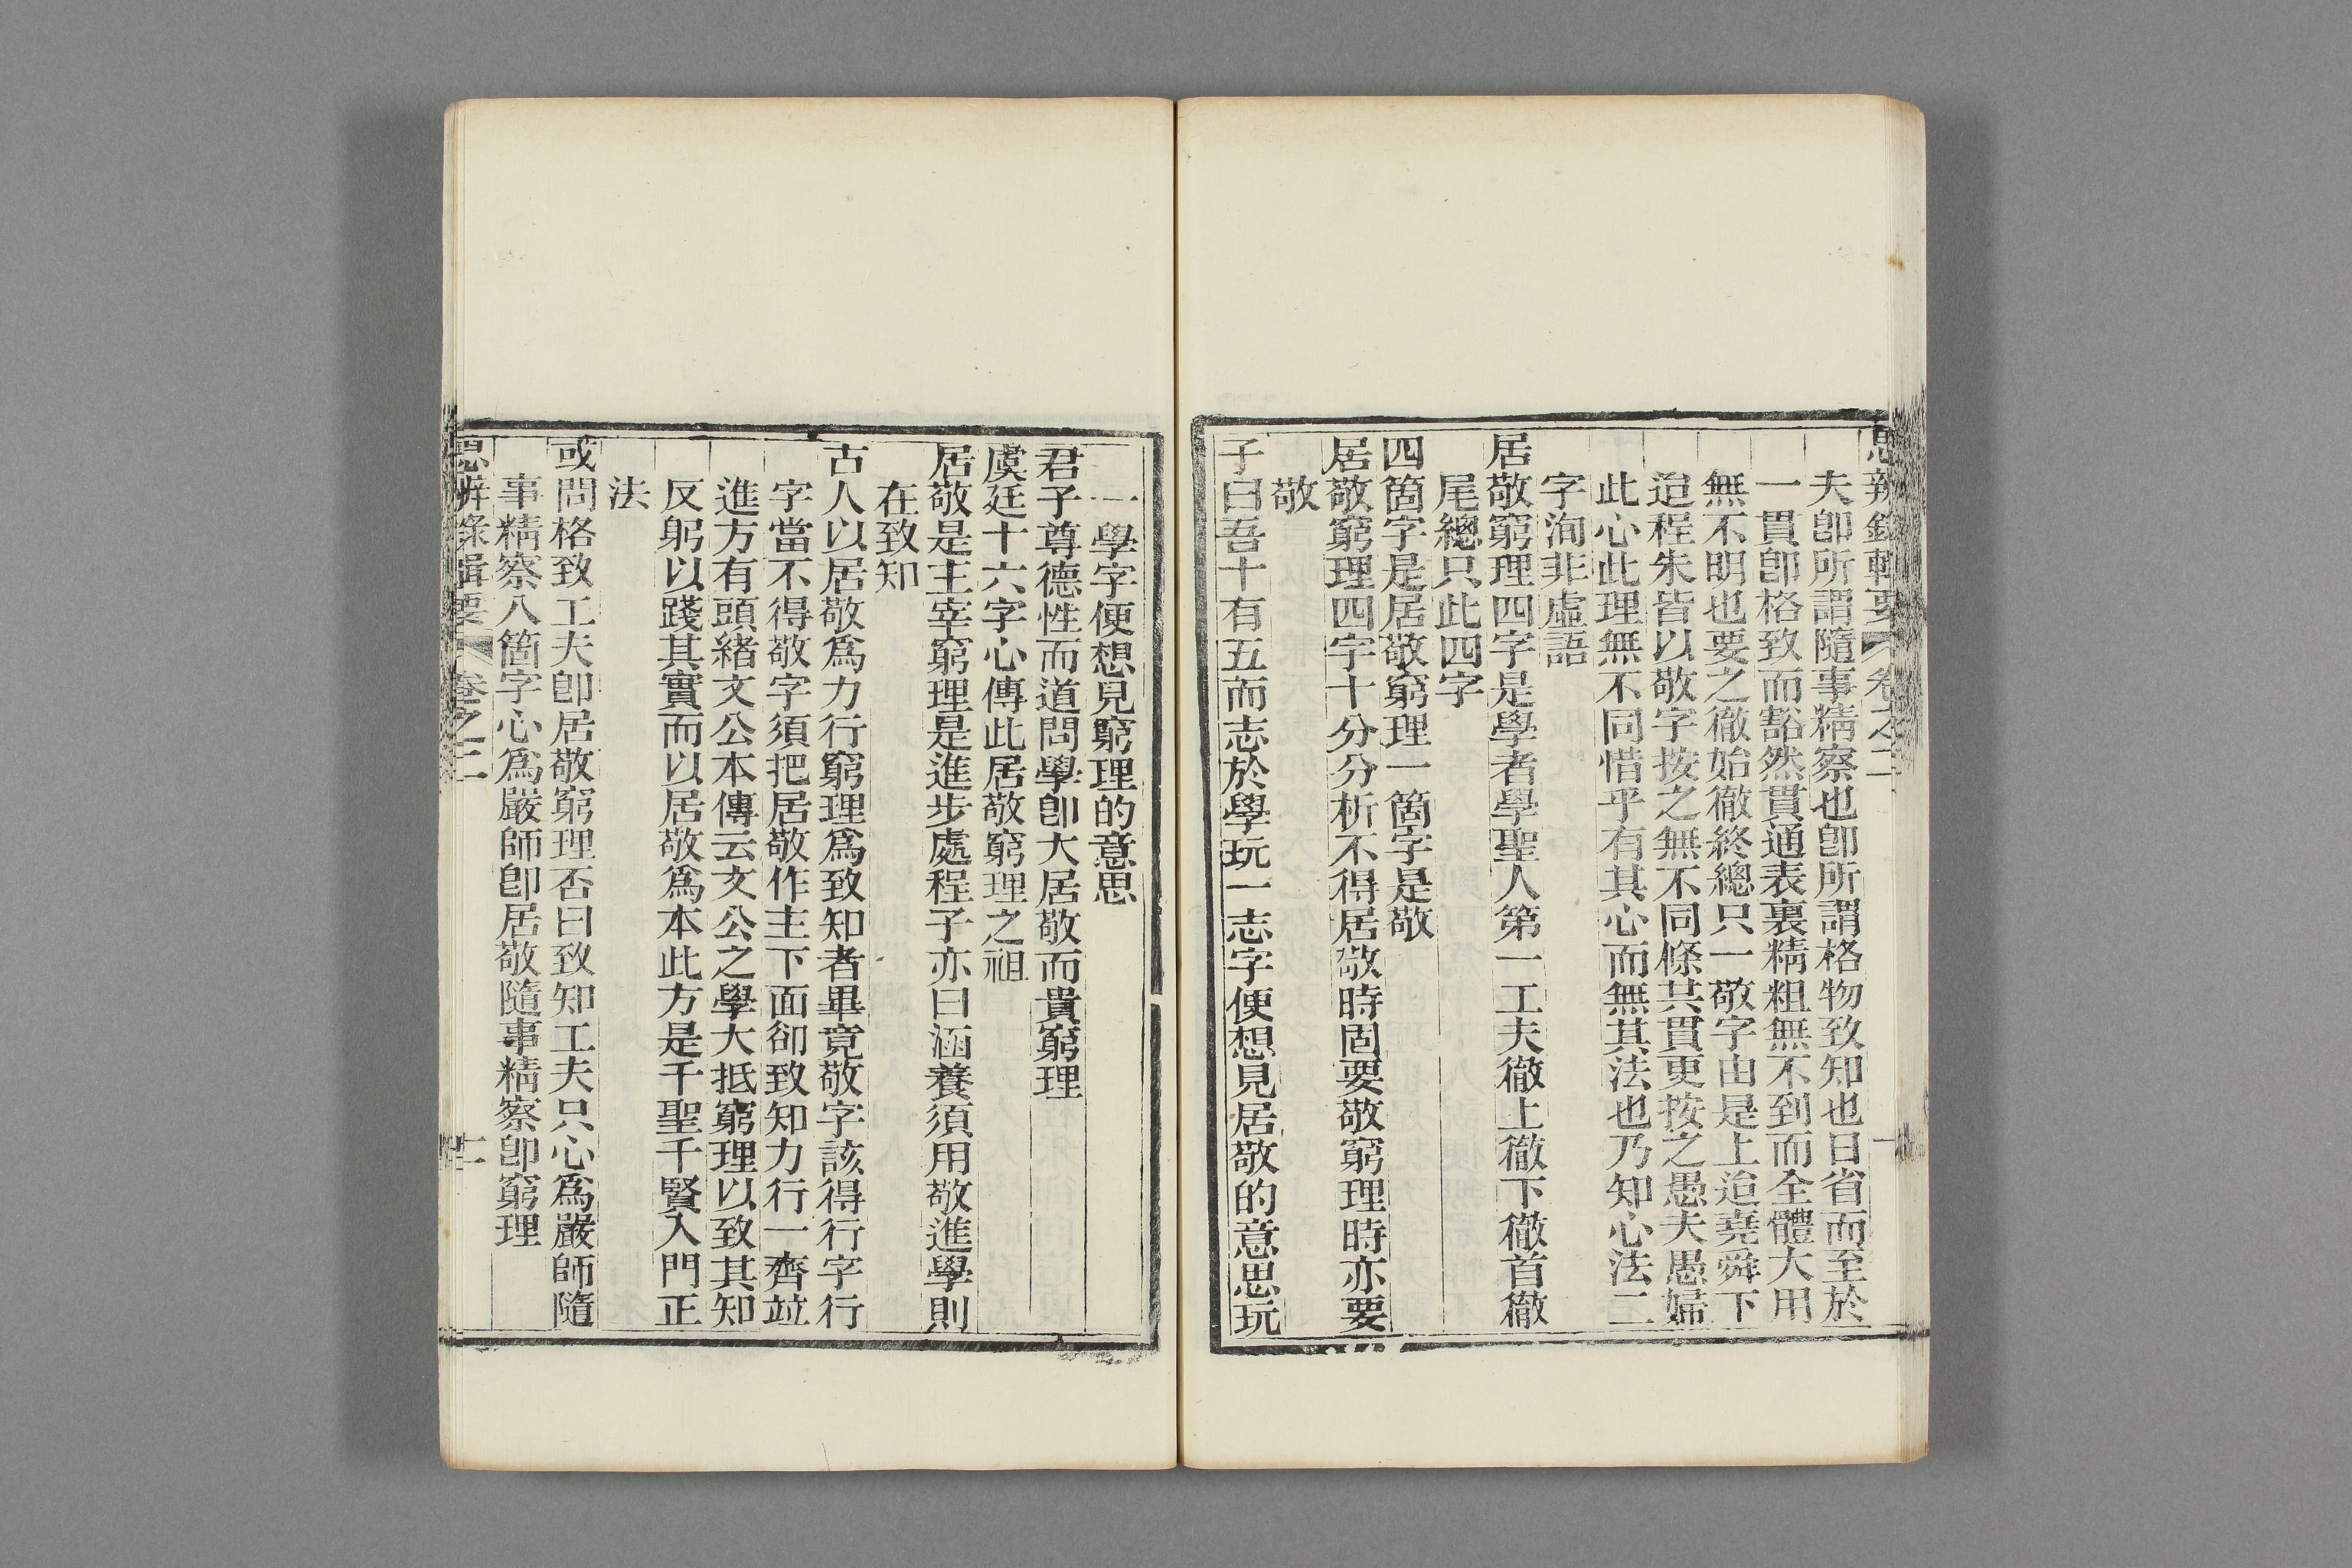 思辨錄輯要 卷之二
夫卽所謂隨事精察也卽所謂格物致知也日省而至於
一貫卽格致而豁然貫通表裏精粗無不到而全體大用
無不明也要之徹始徹終總只一敬字由是上追堯舜下
迨程朱皆以敬字按之無不同條共貫更按之愚夫愚婦
此心此理無不同惜乎有其心而無其法也乃知心法二
字洵非虛語
居敬窮理四字是學者學聖人第一工夫徹上徹下徹首徹
尾總只此四字
四箇字是居敬窮理一箇字是敬
居敬窮理四字十分分析不得居敬時固要敬窮理時亦要
敬
子曰吾十有五而志於學玩一志字便想見居敬的意思玩
一學字便想見窮理的意思
君子尊德性而道問學卽大居敬而貴窮理
虞廷十六字心傳此居敬窮理之祖
居敬是主宰窮理是進步處程子亦曰涵養須用敬進學則
在致知
古人以居敬爲力行窮理爲致知者畢竟敬字該得行字行
字當不得敬字須把居敬作主下面卻致知力行一齊竝
進方有頭緒文公本傳云文公之學大抵窮理以致其知
反躬以踐其實而以居敬爲本此方是千聖千賢入門正
法
或問格致工夫卽居敬窮理否曰致知工夫只心爲嚴師隨
事精察八箇字心爲嚴師卽居敬隨事精察卽窮理
思辨錄輯要 卷之二